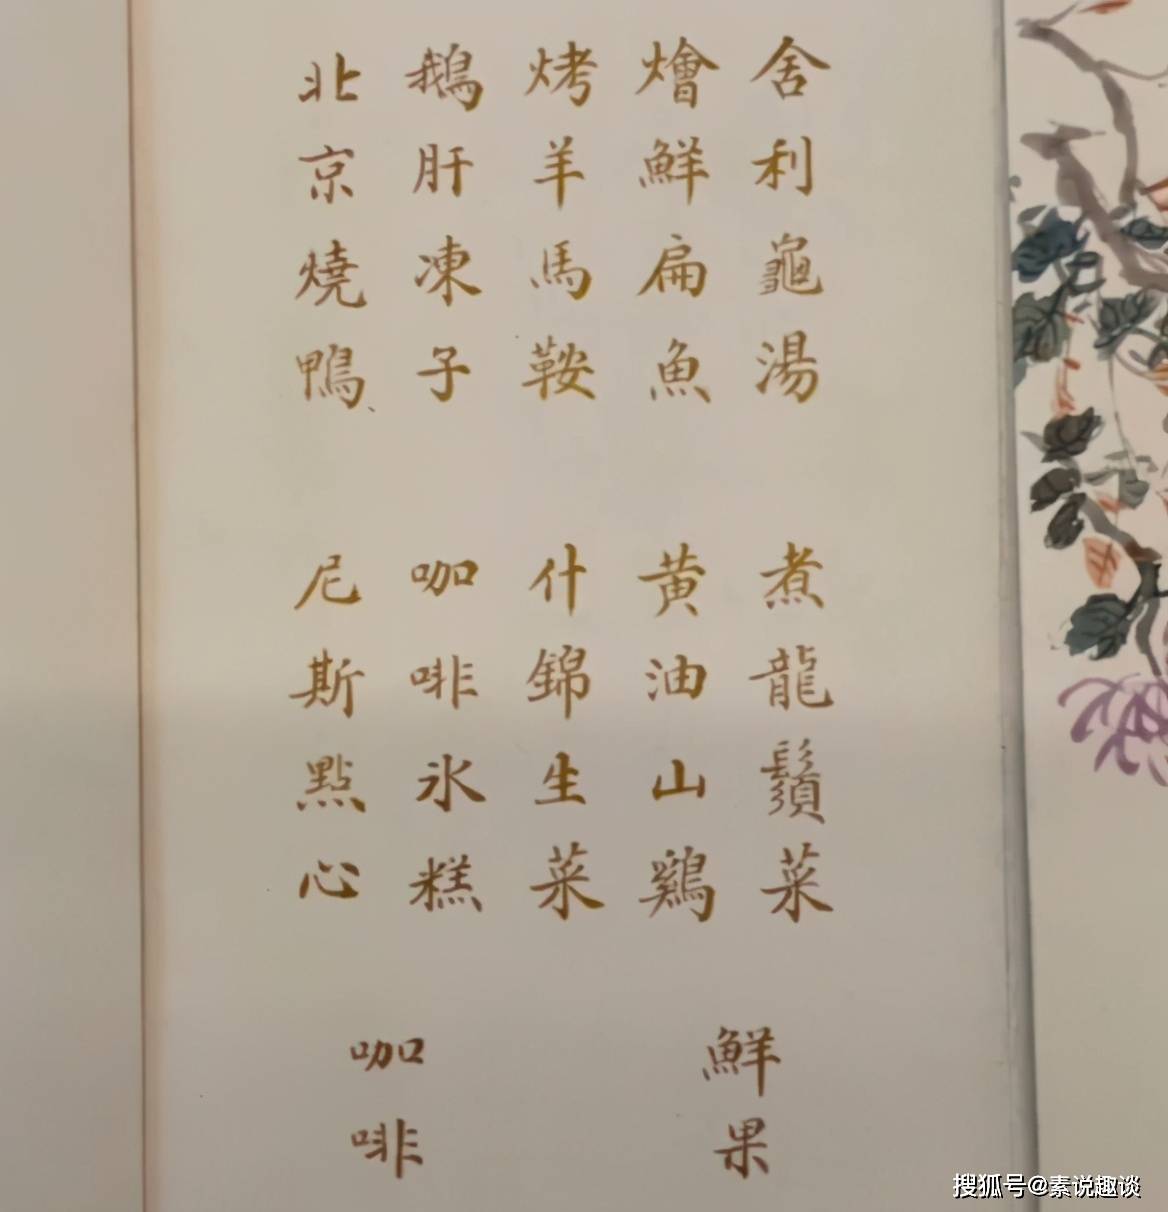 舍利龜湯
燴鮮扁魚
烤羊馬鞍
鵝肝凍子
北京燒鴨
煮龍鬚菜
黄油山鷄
什錦生菜
咖啡氷糕
尼斯點心
鮮果
咖啡
搜狐号@素说趣谈